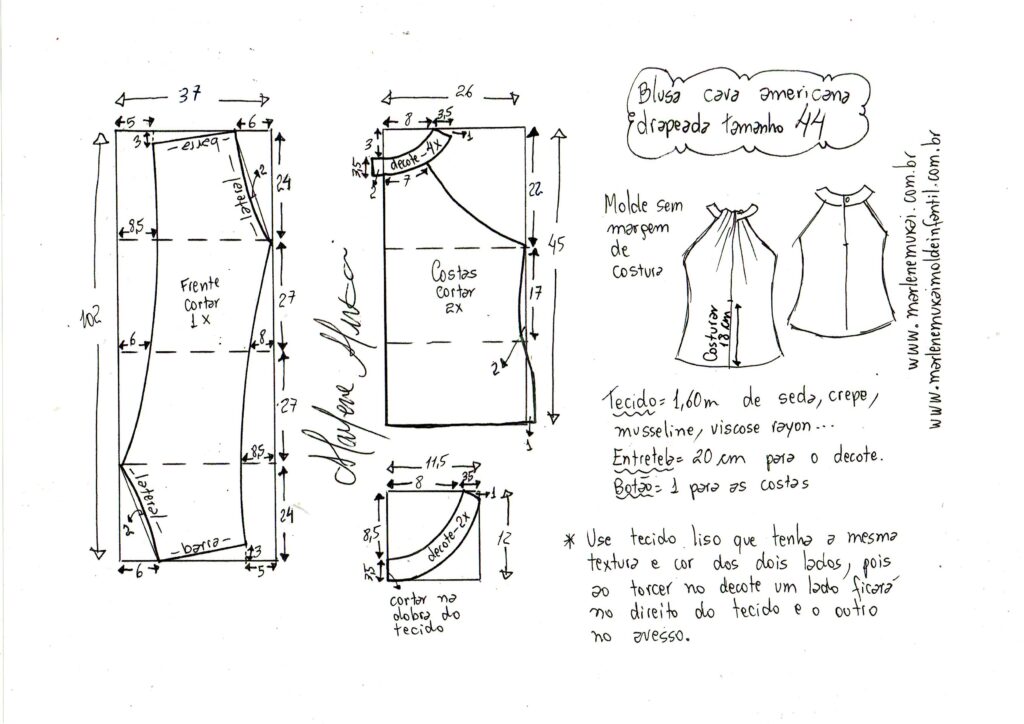 Blusa cava americana
drapeada tamanho 44
37
5
6
3
-barra-
-lateral-
2
24
8,5
Frente
cortar
1x
27
102
6
8
27
8,5
-lateral-
2
24
-barra-
3
6
5
Marlene Mukai
26
8
3,5
1
3
3,5
decote-4x
2
7
22
45
Costas
cortar
2x
17
2
1
11,5
8
3,5
1
8,5
decote-2x
12
3,5
cortar na
dobra do
tecido
Molde sem
margem
de
costura
Costurar
18 cm
www.marlenemukai.com.br
www.marlenemukaimoldeinfantil.com.br
Tecido= 1,60m de seda, crepe,
musseline, viscose rayon...
Entretela= 20 cm para o decote.
Botão= 1 para as costas
* Use tecido liso que tenha a mesma
textura e cor dos dois lados, pois
ao torcer no decote um lado ficará
no direito do tecido e o outro
no avesso.